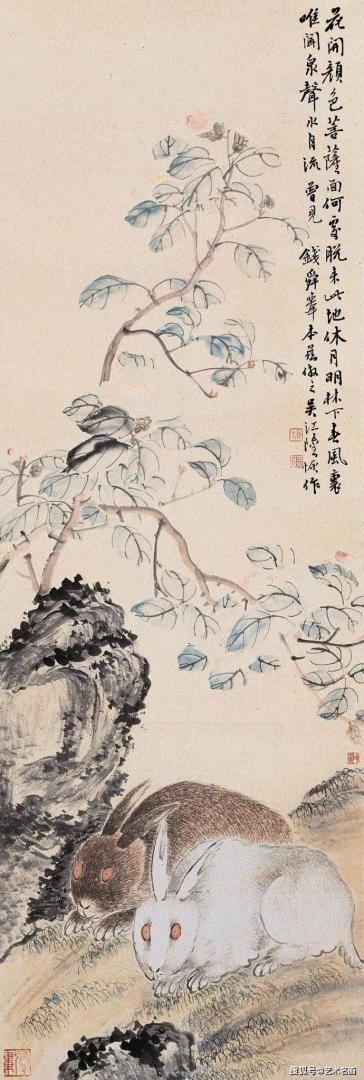 花開顏色菩薩面何處脫來此地休月明林下春風裏
唯聞泉聲水自流 曾見 錢舜舉本茲倣之吳江陸恢作
搜狐号@艺术名画